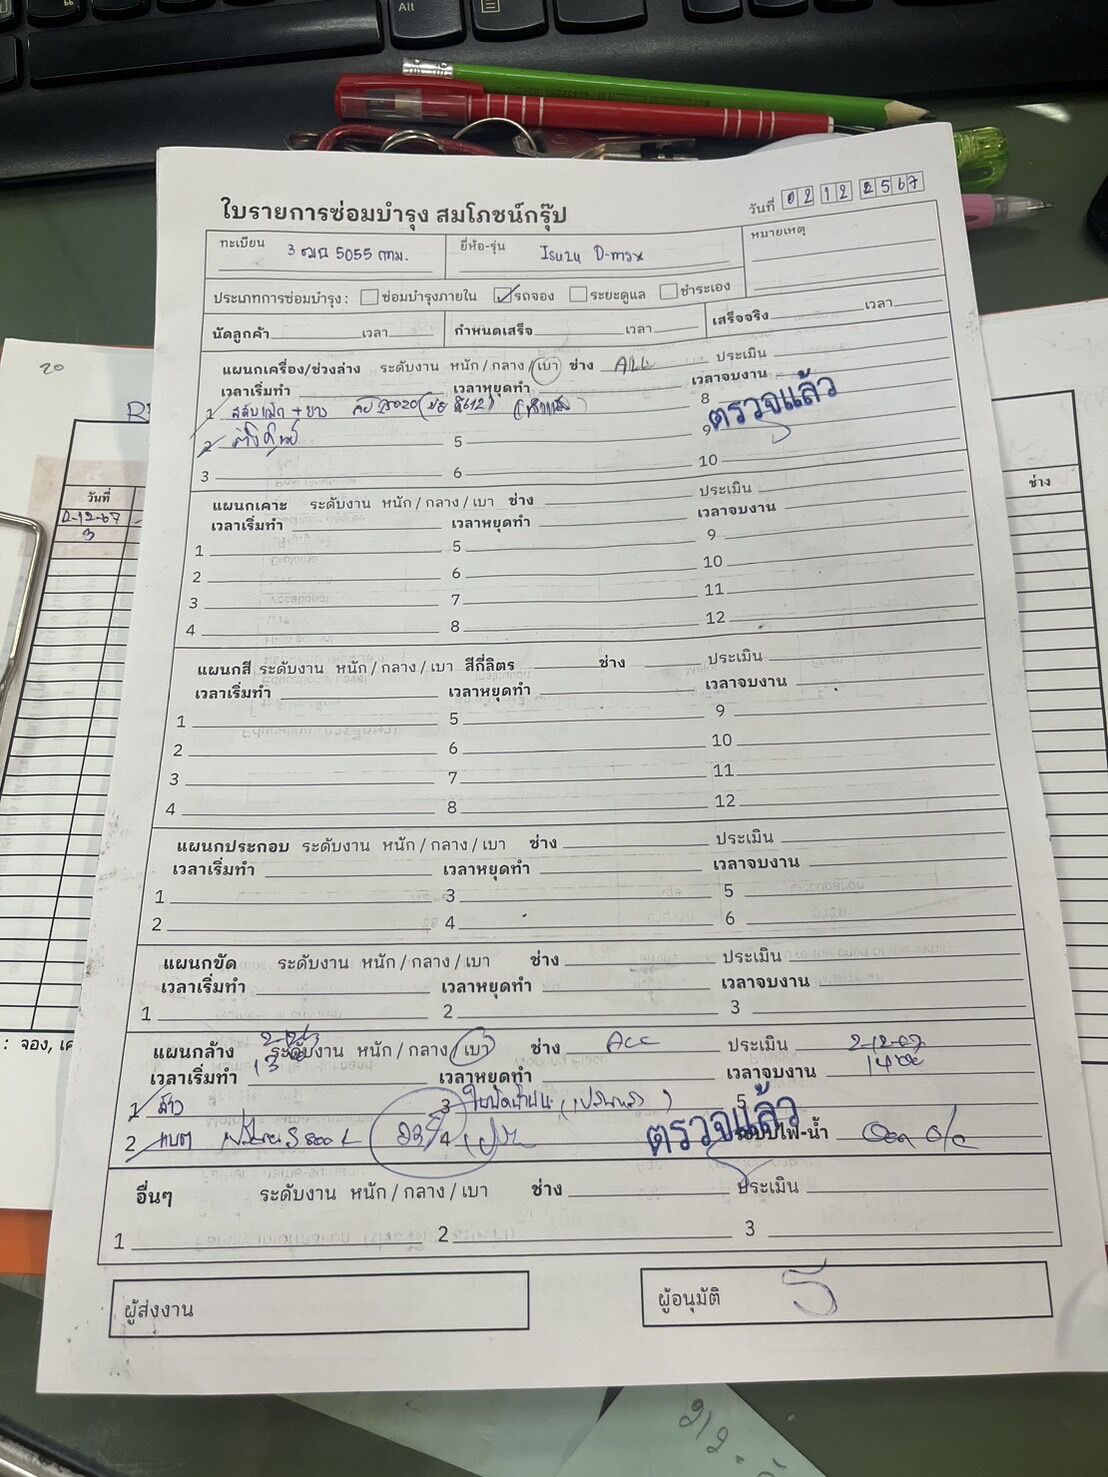 Alt
ใบรายการซ่อมบำรุง สมโภชน์กรุ๊ป
วันที่ 02 12 2567
ทะเบียน 5055 กทม. ยี่ห้อ-รุ่น Isuzu D-max หมายเหตุ
ประเภทการซ่อมบำรุง : ซ่อมบำรุงภายใน รถจอง ระยะดูแล ชำระเอง
นัดลูกค้า เวลา กำหนดเสร็จ เวลา เสร็จจริง เวลา
แผนกเครื่อง/ช่วงล่าง ระดับงาน หนัก / กลาง / เบา ช่าง ประเมิน
เวลาเริ่มทำ เวลาหยุดทำ เวลาจบงาน
1 8 ตรวจแล้ว
2 5 9
3 6 10
แผนกเคาะ ระดับงาน หนัก / กลาง / เบา ช่าง ประเมิน
เวลาเริ่มทำ เวลาหยุดทำ เวลาจบงาน
1 5 9
2 6 10
3 7 11
4 8 12
แผนกสี ระดับงาน หนัก / กลาง / เบา สีกี่ลิตร ช่าง ประเมิน
เวลาเริ่มทำ เวลาหยุดทำ เวลาจบงาน
1 5 9
2 6 10
3 7 11
4 8 12
แผนกประกอบ ระดับงาน หนัก / กลาง / เบา ช่าง ประเมิน
เวลาเริ่มทำ เวลาหยุดทำ เวลาจบงาน
1 3 5
2 4 6
แผนกขัด ระดับงาน หนัก / กลาง / เบา ช่าง ประเมิน
เวลาเริ่มทำ เวลาหยุดทำ เวลาจบงาน
1 2 3
แผนกล้าง ระดับงาน หนัก / กลาง / เบา ช่าง ประเมิน 2-12-67
เวลาเริ่มทำ เวลาหยุดทำ เวลาจบงาน
1 ล้าง 3 ใบปัดน้ำฝน 5
2 แบต 4 ตรวจแล้ว ระบบไฟ-น้ำ
อื่นๆ ระดับงาน หนัก / กลาง / เบา ช่าง ประเมิน
1 2 3
ผู้ส่งงาน ผู้อนุมัติ
20
วันที่
2-12-67
3
ช่าง